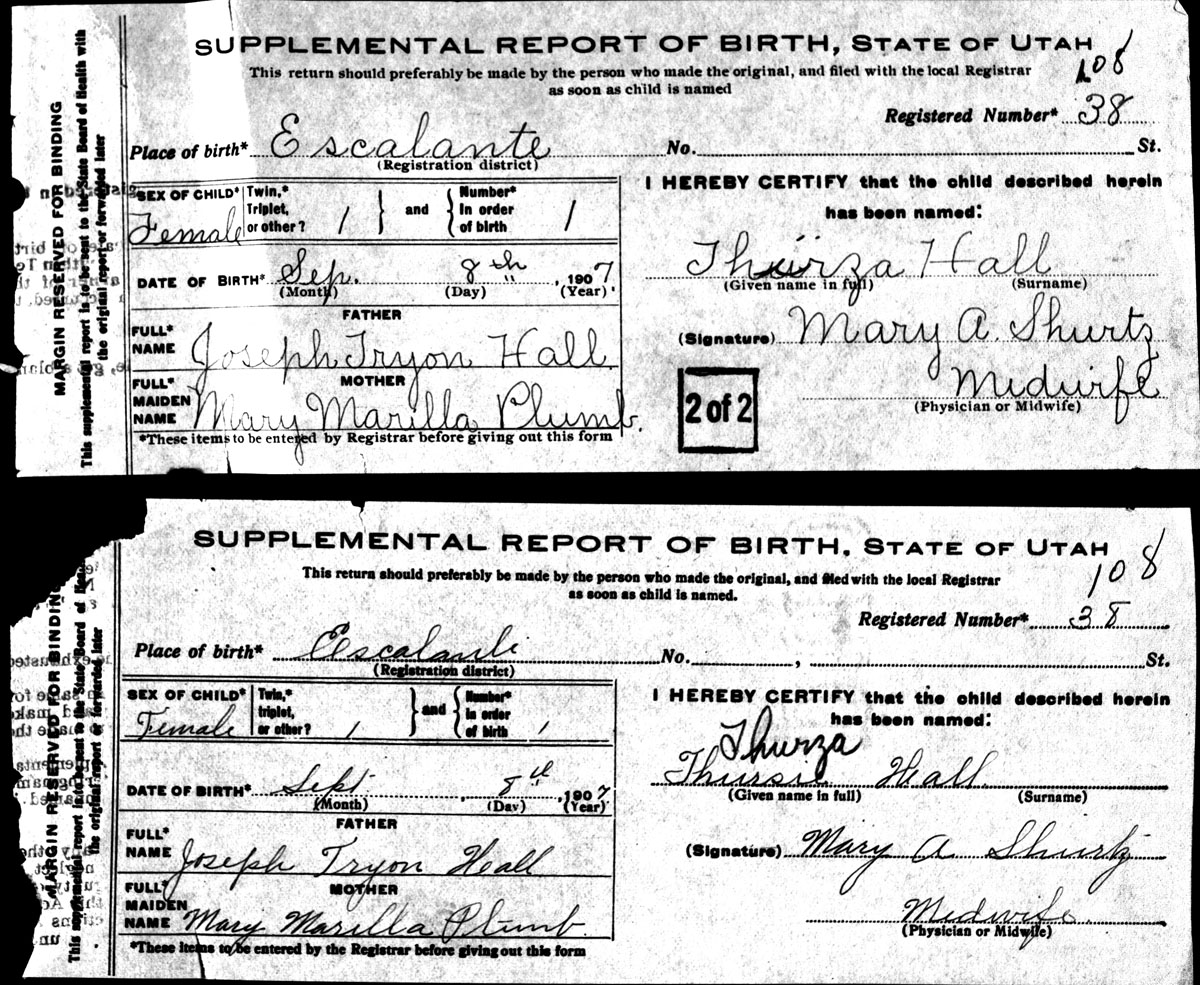 SUPPLEMENTAL REPORT OF BIRTH, STATE OF UTAH
This return should preferably be made by the person who made the original, and filed with the local Registrar
as soon as child is named
108
Registered Number* 38
Place of birth* Escalante No. St.
(Registration district)
MARGIN RESERVED FOR BINDING
This supplemental report is to be sent to the State Board of Health with
the original report or forwarded later
SEX OF CHILD* Female
Twin,* Triplet, or other? 1 } and { Number* In order of birth 1
DATE OF BIRTH* Sep. 8th 1907
(Month) (Day) (Year)
FATHER
FULL* NAME Joseph Tryon Hall
MOTHER
FULL* MAIDEN NAME Mary Marilla Plumb.
*These items to be entered by Registrar before giving out this form
I HEREBY CERTIFY that the child described herein
has been named:
Thurza Hall
(Given name in full) (Surname)
(Signature) Mary A. Shurtz
Midwife
(Physician or Midwife)
2 of 2
SUPPLEMENTAL REPORT OF BIRTH. STATE OF UTAH
This return should preferably be made by the person who made the original, and filed with the local Registrar
as soon as child is named.
108
Registered Number* 38
Place of birth* Escalante No. , St.
(Registration district)
MARGIN RESERVED FOR BINDING
This supplemental report is to be sent to the State Board of
the original report or forwarded later
SEX OF CHILD* Female
Twin,* triplet, or other? 1 } and { Number* In order of birth 1
DATE OF BIRTH* Sept 8th, 1907
(Month) (Day) (Year)
FATHER
FULL* NAME Joseph Tryon Hall
MOTHER
FULL* MAIDEN NAME Mary Marilla Plumb
*These items to be entered by the Registrar before giving out this form
I HEREBY CERTIFY that the child described herein
has been named:
Thurza
Thursie Hall
(Given name in full) (Surname)
(Signature) Mary A Shurtz
Midwife
(Physician or Midwife)